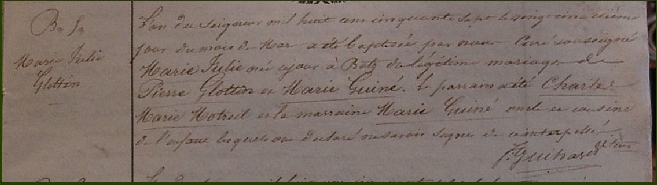 B. J.
Marie Julie
Glottin
L'an du Seigneur mil huit cent cinquante sept le vingt cinquième
jour du mois de Mars a été baptisée par nous Curé soussigné
Marie Julie née ce jour à Batz du légitime mariage de
Pierre Glottin et Marie Guiné. Le parrain a été Charles
Marie et la marraine Marie Guiné oncle et cousine
de l'enfant lesquels ont déclaré ne savoir signer de ce interpellé
J. Guihard